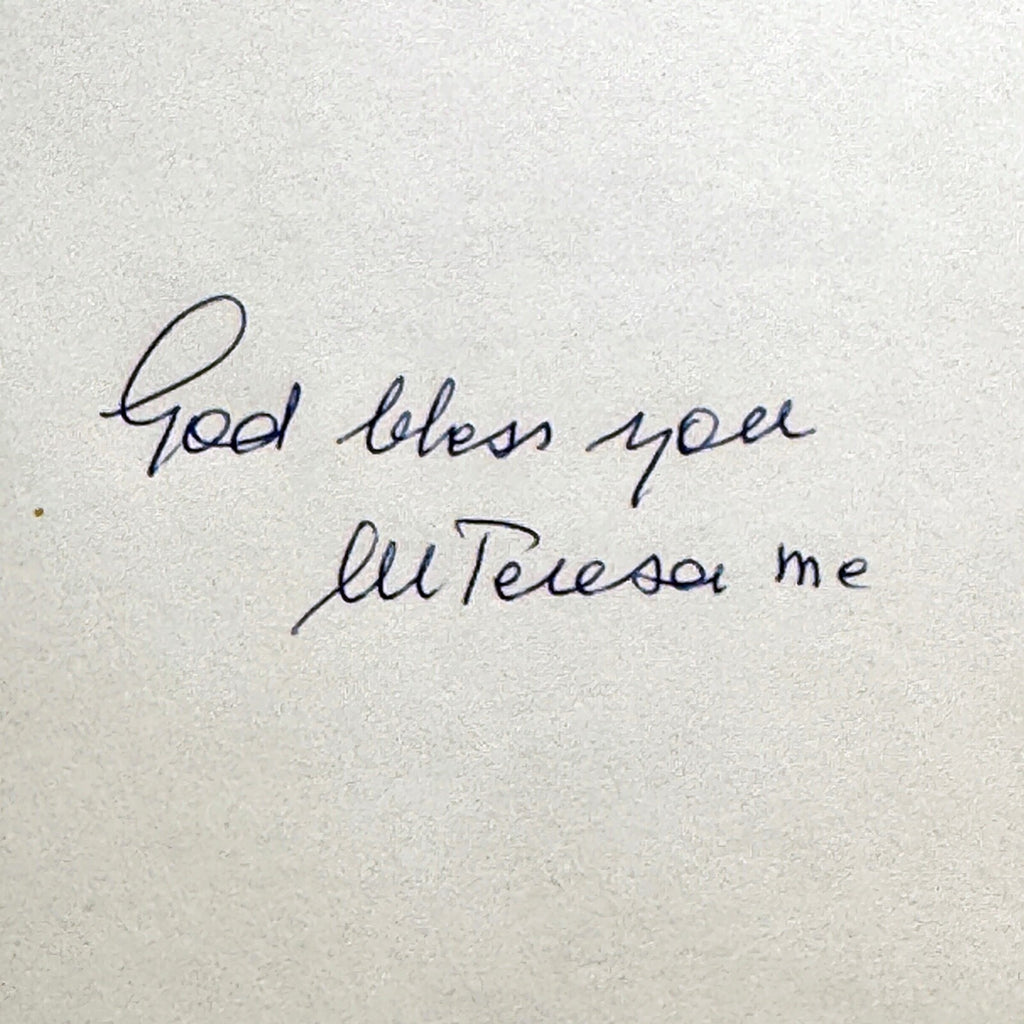 God bless you
M Teresa me